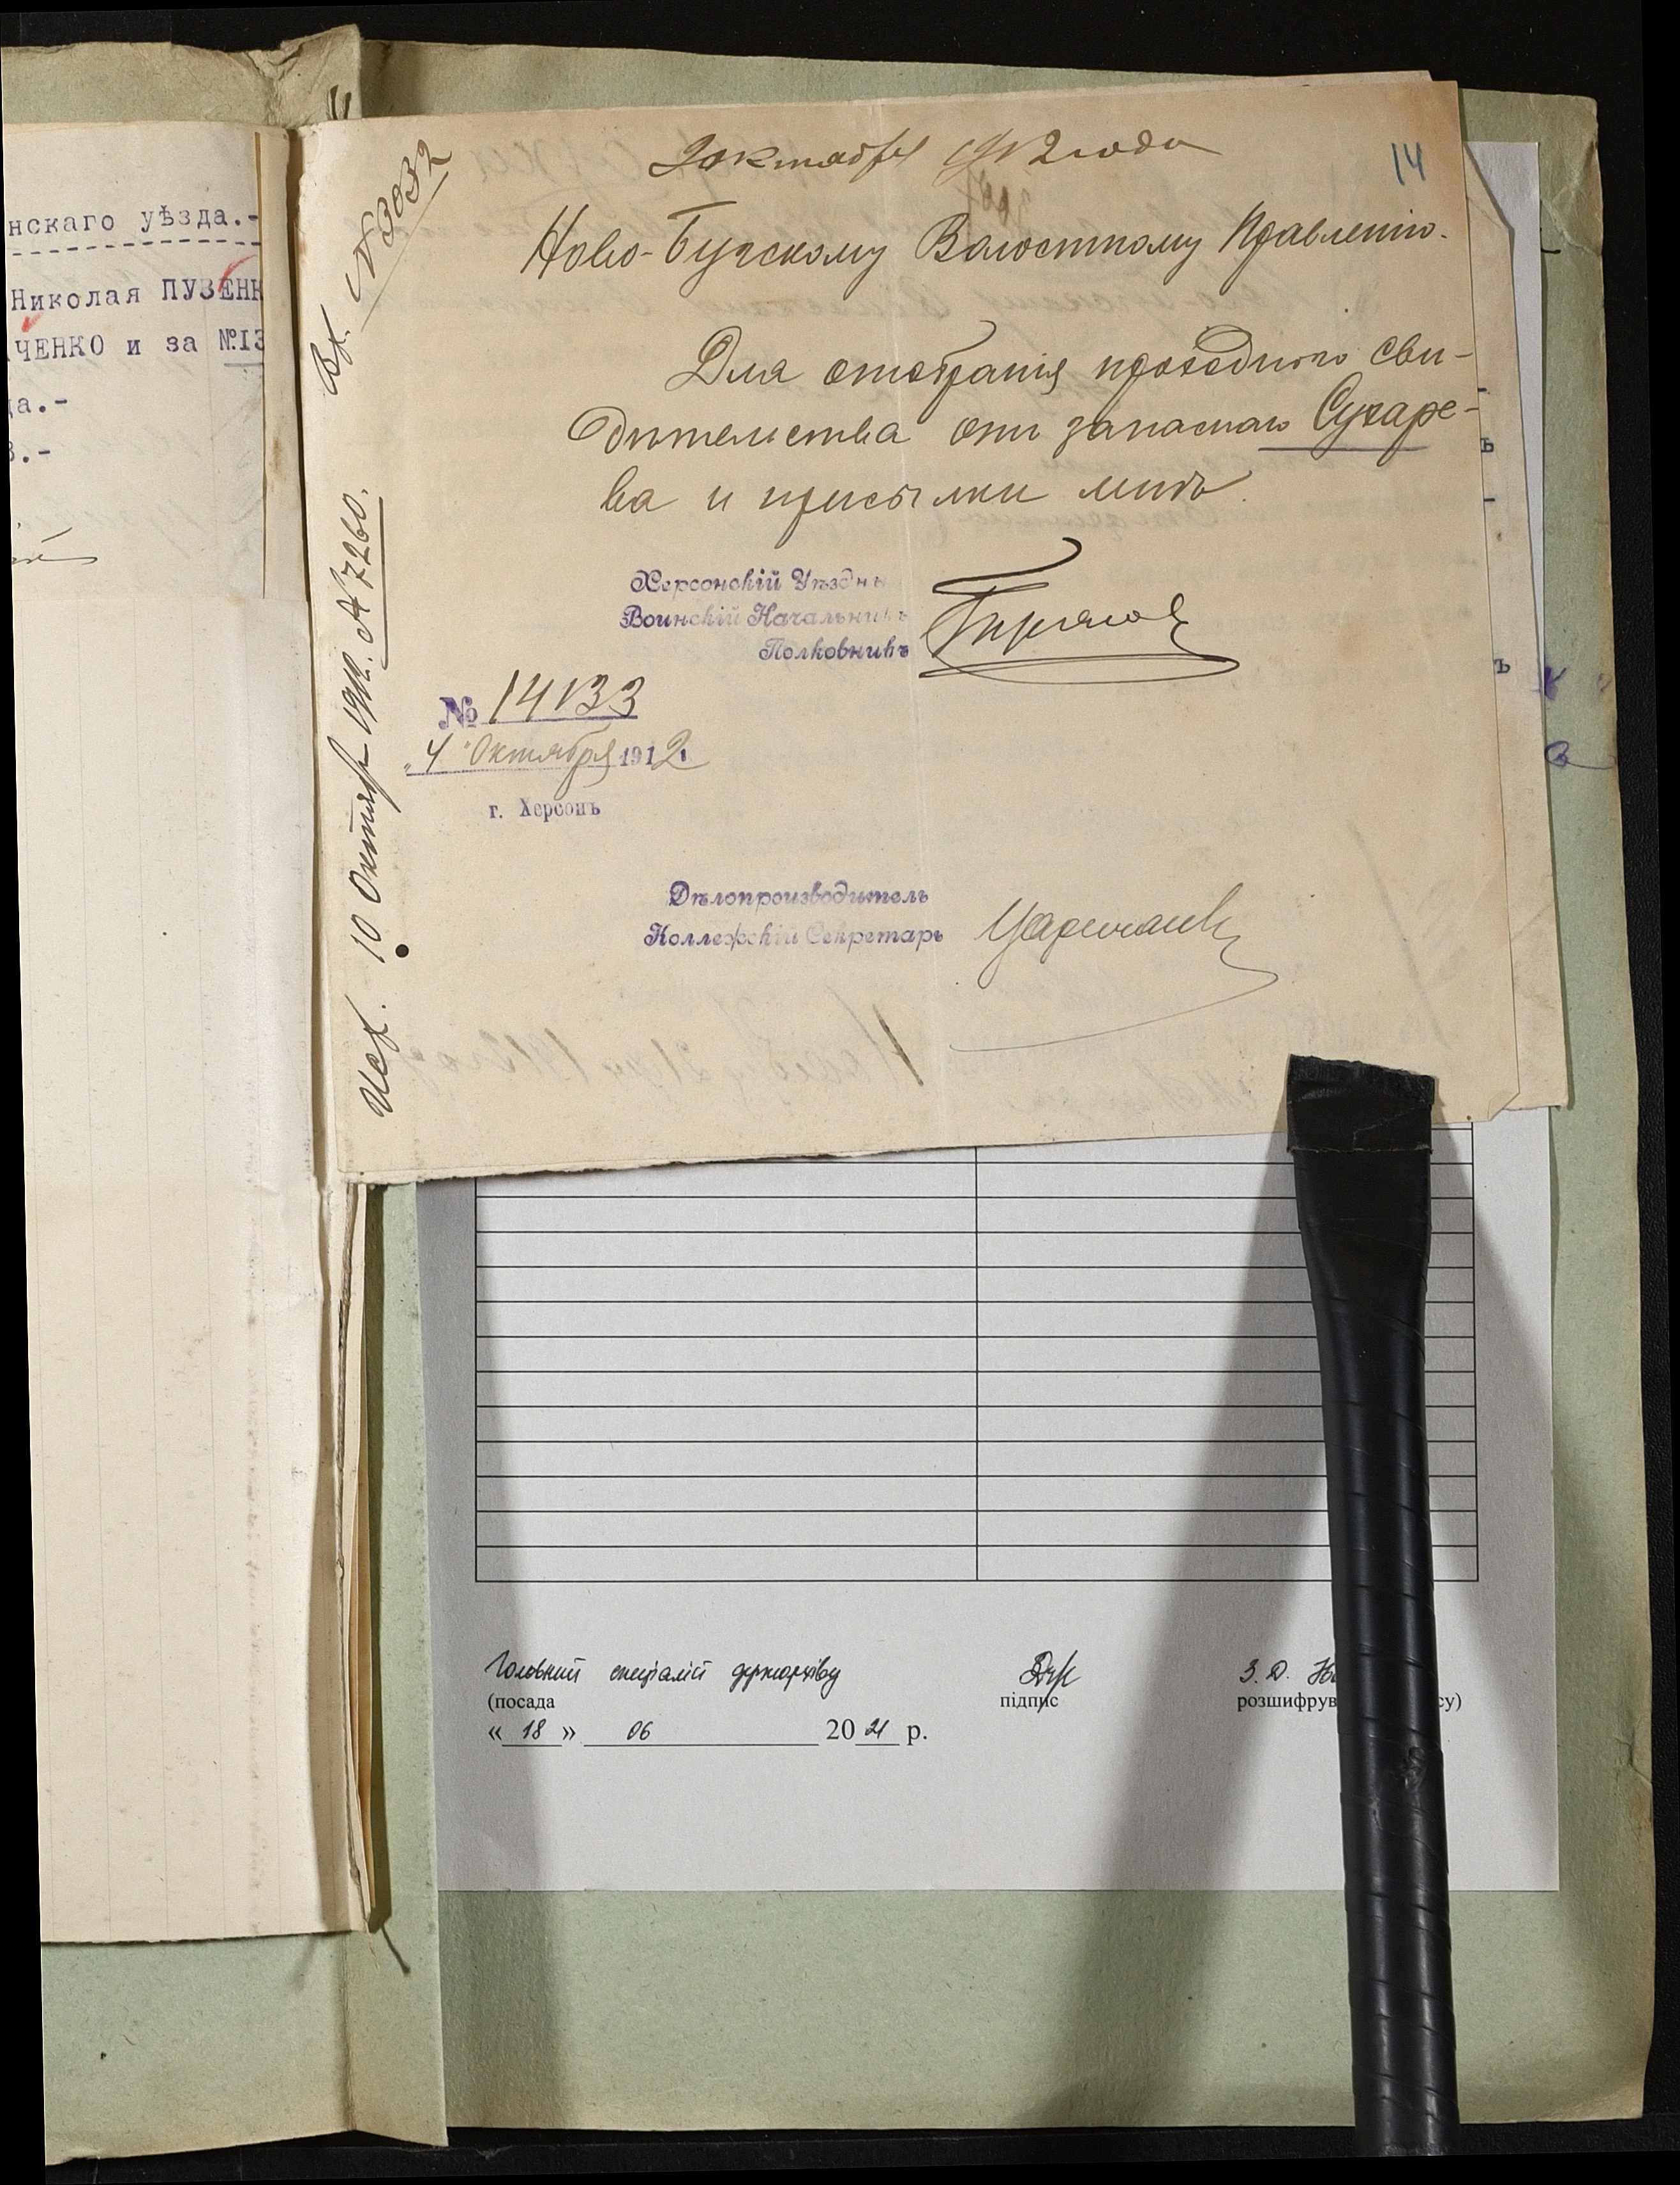 нскаго уѣзда.-
Николая ПУЗЕНН
ЧЕНКО и за №13
да.-
в.-
14
2 октября 1912 года
Ново-Бугскому Волостному Правленію.
Для отобранія проходного сви-
дѣтельства отъ запаснаго Сухаре-
ва и присылки мнѣ.
Херсонскій Уѣздны
Воинскій Начальникъ
Полковникъ
№ 14133
"4" Октября 1912
г. Херсонъ
Дѣлопроизводитель
Коллежскій Секретарь
Вх. №3032
Исх. 10 Октября 1912. № 7260.
Головний спеціаліст держархіву
З. Д.
(посада
підпис
розшифрув
су)
« 18 » 06 2021 р.